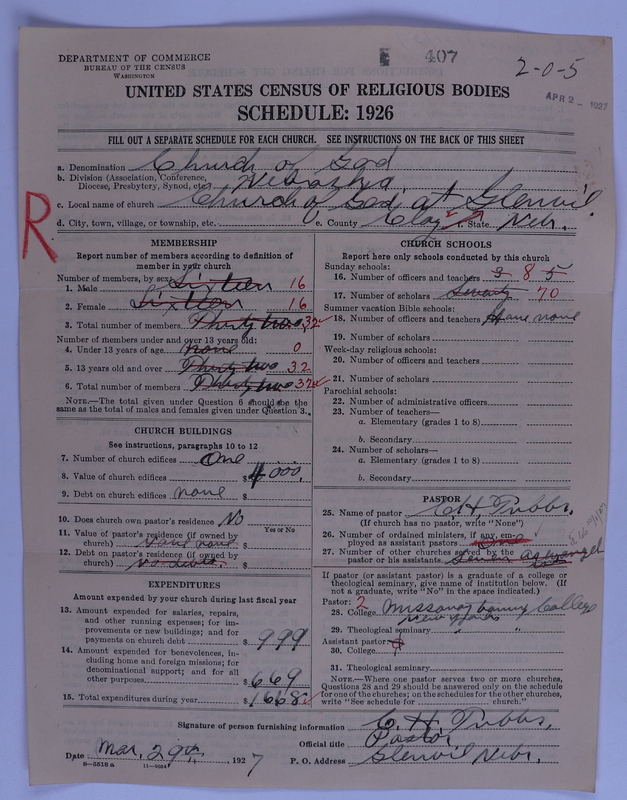 407
2-0-5
APR 2 - 1927
DEPARTMENT OF COMMERCE
BUREAU OF THE CENSUS
WASHINGTON
UNITED STATES CENSUS OF RELIGIOUS BODIES
SCHEDULE: 1926
FILL OUT A SEPARATE SCHEDULE FOR EACH CHURCH. SEE INSTRUCTIONS ON THE BACK OF THIS SHEET
R
a. Denomination Church of God
b. Division (Association, Conference, Diocese, Presbytery, Synod, etc.) Nebraska
c. Local name of church Church of God at Glenvil
d. City, town, village, or township, etc. e. County Clay f. State Nebr.
MEMBERSHIP
Report number of members according to definition of
member in your church
Number of members, by sex:
1. Male Sixteen 16
2. Female Sixteen 16
3. Total number of members Thirty two 32
Number of members under and over 13 years old:
4. Under 13 years of age none 0
5. 13 years old and over Thirty two 32
6. Total number of members Thirty two 32
NOTE.—The total given under Question 6 should be the
same as the total of males and females given under Question 3.
CHURCH BUILDINGS
See instructions, paragraphs 10 to 12
7. Number of church edifices One
8. Value of church edifices $ 4000.
9. Debt on church edifices none $
10. Does church own pastor's residence No
Yes or No
11. Value of pastor's residence (if owned by
church) none $
12. Debt on pastor's residence (if owned by
church) no $
EXPENDITURES
Amount expended by your church during last fiscal year
13. Amount expended for salaries, repairs,
and other running expenses; for im-
provements or new buildings; and for
payments on church debt $ 999
14. Amount expended for benevolences, in-
cluding home and foreign missions; for
denominational support; and for all
other purposes $ 669
15. Total expenditures during year $ 1668
CHURCH SCHOOLS
Report here only schools conducted by this church
Sunday schools:
16. Number of officers and teachers 8
17. Number of scholars 70
Summer vacation Bible schools:
18. Number of officers and teachers Have none
19. Number of scholars
Week-day religious schools:
20. Number of officers and teachers
21. Number of scholars
Parochial schools:
22. Number of administrative officers
23. Number of teachers—
a. Elementary (grades 1 to 8)
b. Secondary
24. Number of scholars—
a. Elementary (grades 1 to 8)
b. Secondary
PASTOR
25. Name of pastor C. H. Tubbs.
(If church has no pastor, write "None")
26. Number of ordained ministers, if any, em-
ployed as assistant pastors
27. Number of other churches served by the
pastor or his assistants
If pastor (or assistant pastor) is a graduate of a college or
theological seminary, give name of institution below. (If
not a graduate, write "No" in the space indicated.)
Pastor: 2
28. College
29. Theological seminary " "
Assistant pastor:
30. College
31. Theological seminary
NOTE.—Where one pastor serves two or more churches,
Questions 28 and 29 should be answered only on the schedule
for one of the churches; on the schedules for the other churches,
write "See schedule for church."
Signature of person furnishing information C. H. Tubbs,
Official title Pastor
Date Mar, 29th, 1927 P. O. Address Glenvil Nebr.
8—5518a 11—9084